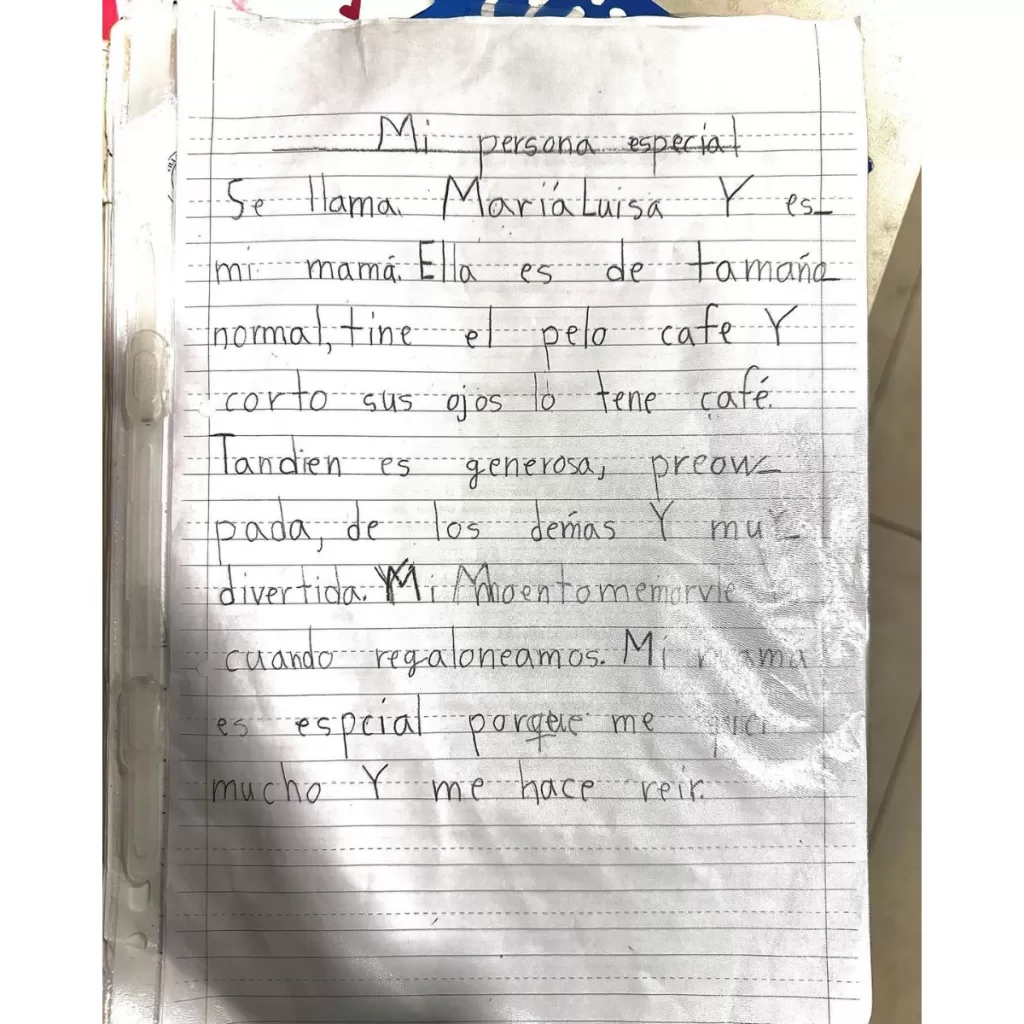 Mi persona especial
Se llama María Luisa Y es
mi mamá. Ella es de tamaño
normal, tine el pelo cafe Y
corto sus ojos lo tene café.
Tandien es generosa, preou
pada, de los demás Y mu
divertida. Mi
cuando regaloneamos. Mi mama
es espcial porque me
mucho Y me hace reir.